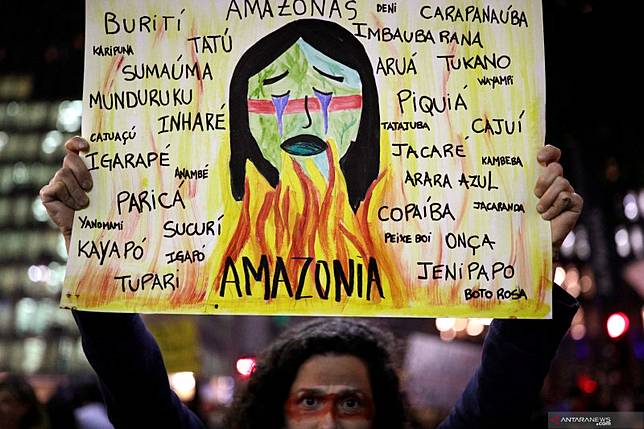 AMAZONAS
BURITÍ
DENI
CARAPANAÚBA
KARIPUNA
TATÚ
IMBAUBARANA
SUMAÚMA
ARUÁ
TUKANO
WAYAMPI
MUNDURUKU
PIQUIÁ
INHARÉ
TATAJUBA
CAJUÍ
CAJUAÇÚ
JACARÉ
IGARAPÉ
KAMBEBA
ANAMBÉ
ARARA AZUL
PARICÁ
COPAÍBA
JACARANDA
YANOMAMI
SUCURÍ
PEIXE BOI
ONÇA
KAYAPÓ
IGAPÓ
AMAZONIA
JENIPAPO
TUPARI
BOTO ROSA
ANTARANEWS
.com